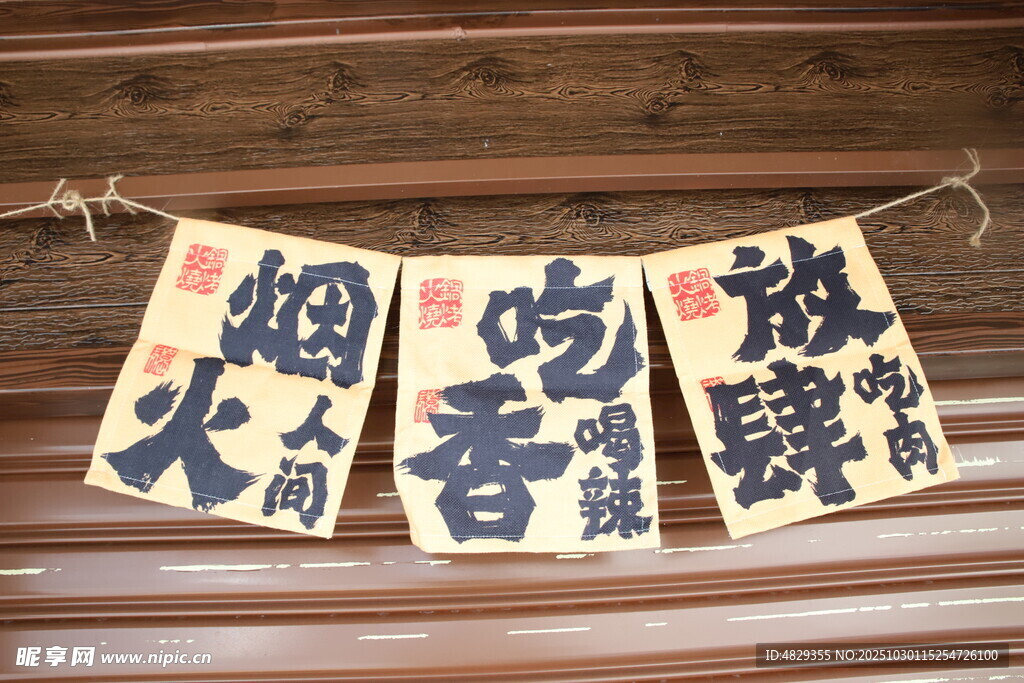 火鍋
燒烤
烟火
人间
火鍋
燒烤
吃香
喝辣
火鍋
燒烤
放肆
吃肉
昵享网 www.nipic.cn
ID:4829355 NO:20251030115254726100